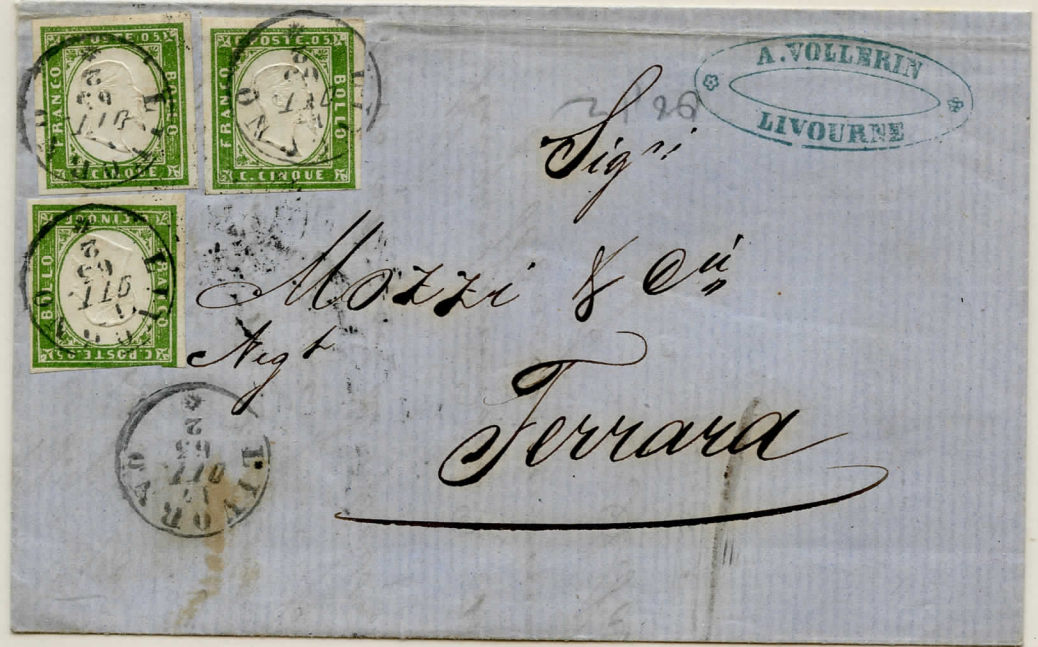 C. POSTE. 05
FRANCO
BOLLO
C. CINQUE
C. POSTE. 05
FRANCO
BOLLO
C. CINQUE
BOLLO
FRANCO
C. POSTE. 05
A. VOLLERIN
LIVOURNE
Sigri
Mozzi &
Negt
Ferrara
LIVORNO
63
2